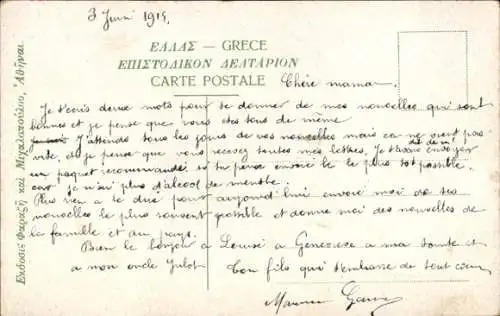 3 Juin 1915
ΕΛΛΑΣ — GRECE
ΕΠΙΣΤΟΛΙΚΟΝ ΔΕΛΤΑΡΙΟΝ
CARTE POSTALE
Chère maman.
Je t'écris deux mots pour te donner de mes nouvelles qui sont
bonnes et je pense que vous êtes tous de même.
J'attends tous les jours de vos nouvelles mais ça ne vient pas
vite, et je pense que vous recevez toutes mes lettres. Je t'avais dit de m'envoyer
un paquet recommandé si tu peux envoie le le plus tôt possible.
car je n'ai plus d'alcool de menthe.
Plus rien a te dire pour aujourd'hui envoie moi de tes
nouvelles le plus souvent possible et donne moi des nouvelles de
la famille et du pays.
Bien le bonjour a Louise a Genevieve a ma tante et
a mon oncle Julot. Ton fils qui t'embrasse de tout cœur
Maurice
Ἔκδοσις Φαραζῆ καὶ Μιχαλοπούλου, Ἀθῆναι.